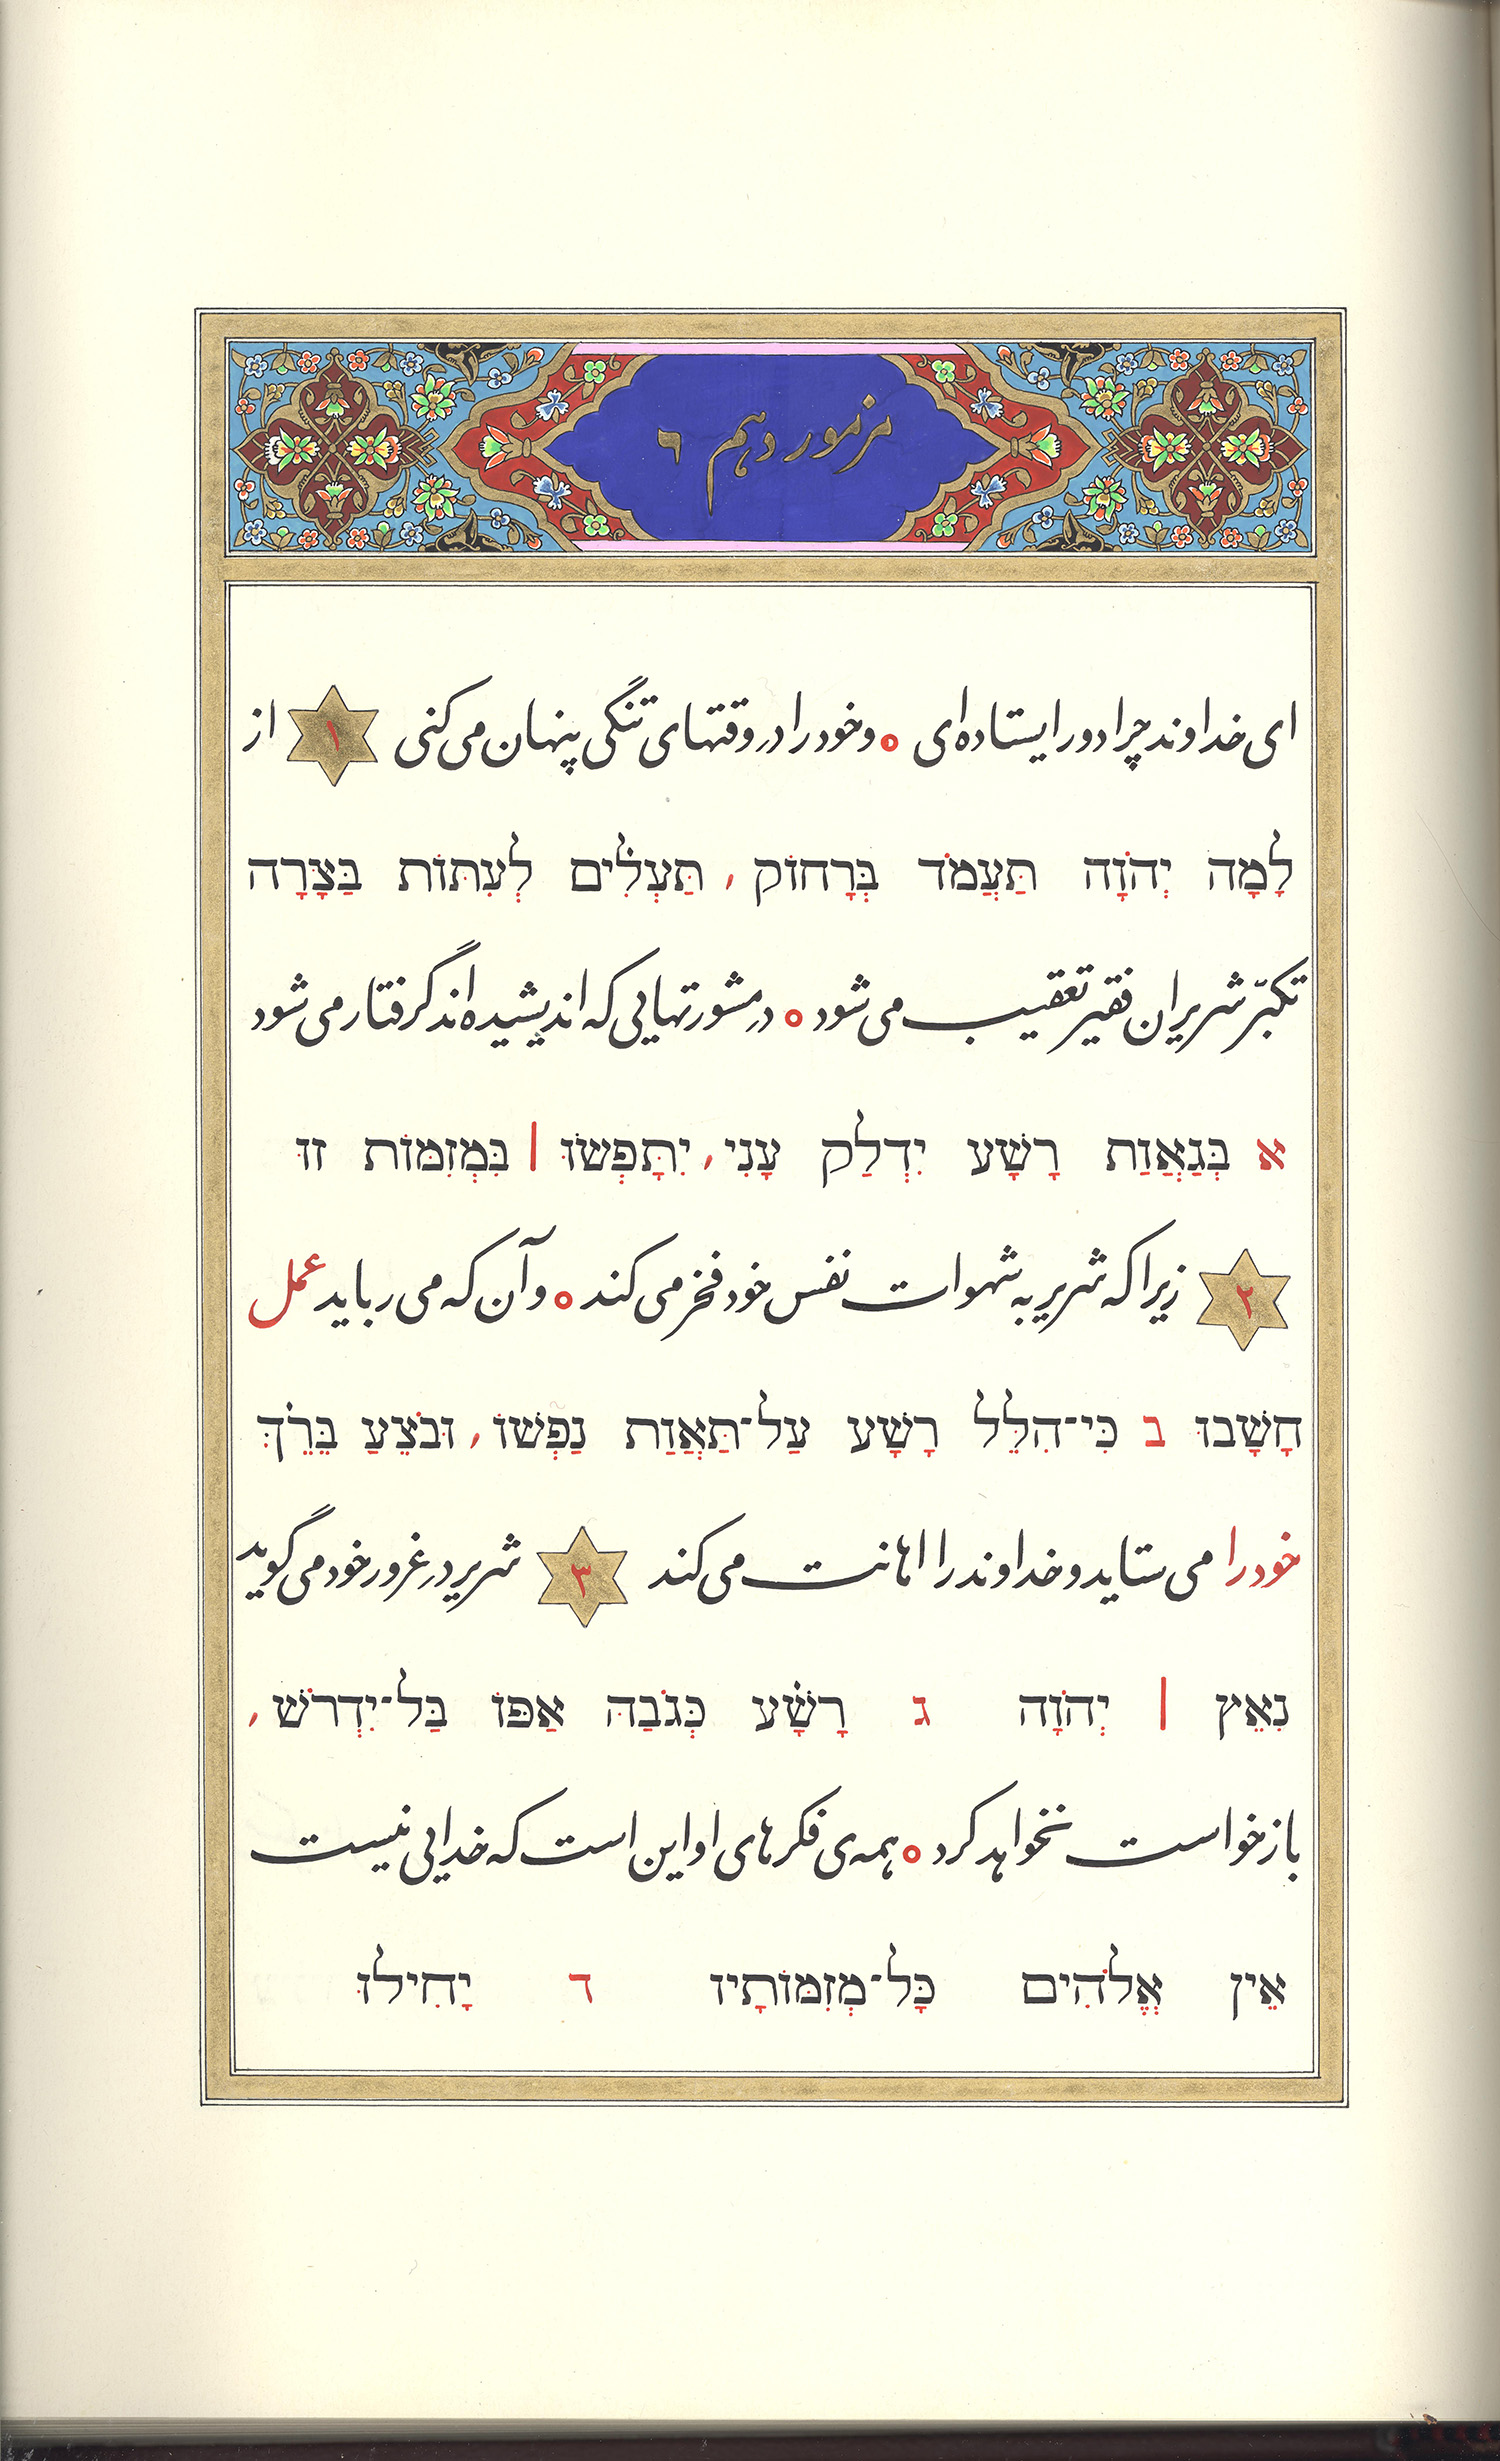 مزمور دهم ٦
ای خداوند چرا دور ایستاده‌ای ० و خود را در وقتهای تنگی پنهان می‌کنی ۱ از
לָמָה יְהֹוָה תַּעֲמֹד בְּרָחוֹק, תַּעְלִים לְעִתּוֹת בַּצָּרָה
تکبّر شریران فقیر تعقیب می‌شود ० در مشورتهایی که اندیشیده‌اند گرفتار می‌شود
א בְּגַאֲוַת רָשָׁע יִדְלַק עָנִי, יִתָּפְשׂוּ | בִּמְזִמּוֹת זוּ
۲ زیرا که شریر به شهوات نفس خود فخر می‌کند ० و آن که می‌رباید عمل
חָשָׁבוּ ב כִּי־הִלֵּל רָשָׁע עַל־תַּאֲוַת נַפְשׁוֹ, וּבֹצֵעַ בֵּרֵךְ
خود را می‌ستاید و خداوند را اهانت می‌کند ۳ شریر در غرور خود می‌گوید
נִאֵץ | יְהֹוָה ג רָשָׁע כְּגֹבַהּ אַפּוֹ בַּל־יִדְרֹשׁ,
بازخواست نخواهد کرد ० همه‌ی فکرهای او این است که خدایی نیست
אֵין אֱלֹהִים כָּל־מְזִמּוֹתָיו ד יָחִילוּ